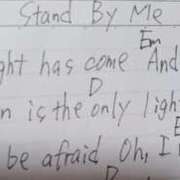 Stand By Me
Em
ght has come And
D
n is the only ligh
E
be afraid Oh, I
D